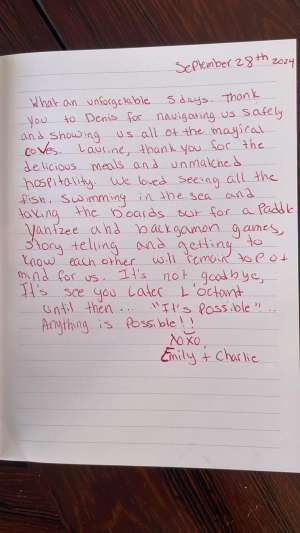 September 28th 2024
What an unforgetable 5 days. Thank
you to Denis for navigating us safely
and showing us all of the magical
coves. Laurine, thank you for the
delicious meals and unmatched
hospitality. We loved seeing all the
fish, swimming in the sea and
taking the boards out for a paddle
Yahtzee and backgamon games,
Story telling and getting to
know each other will remain top of
mind for us. It's not goodbye,
It's see you later L'octant
until then... "It's Possible"...
Anything is Possible!!
XOXO,
Emily + Charlie